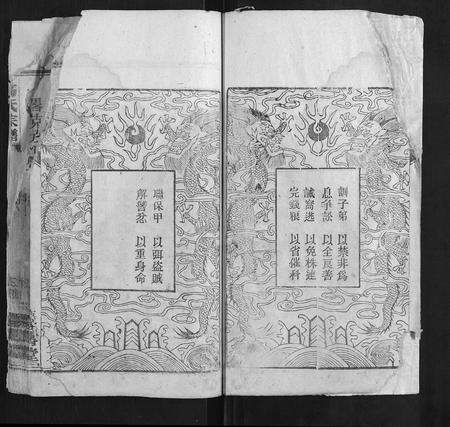 訓子弟 以禁非為
息爭訟 以全良善
誡窩逃 以免株連
完錢粮 以省催科
聯保甲 以弭盜賊
解讐忿 以重身命